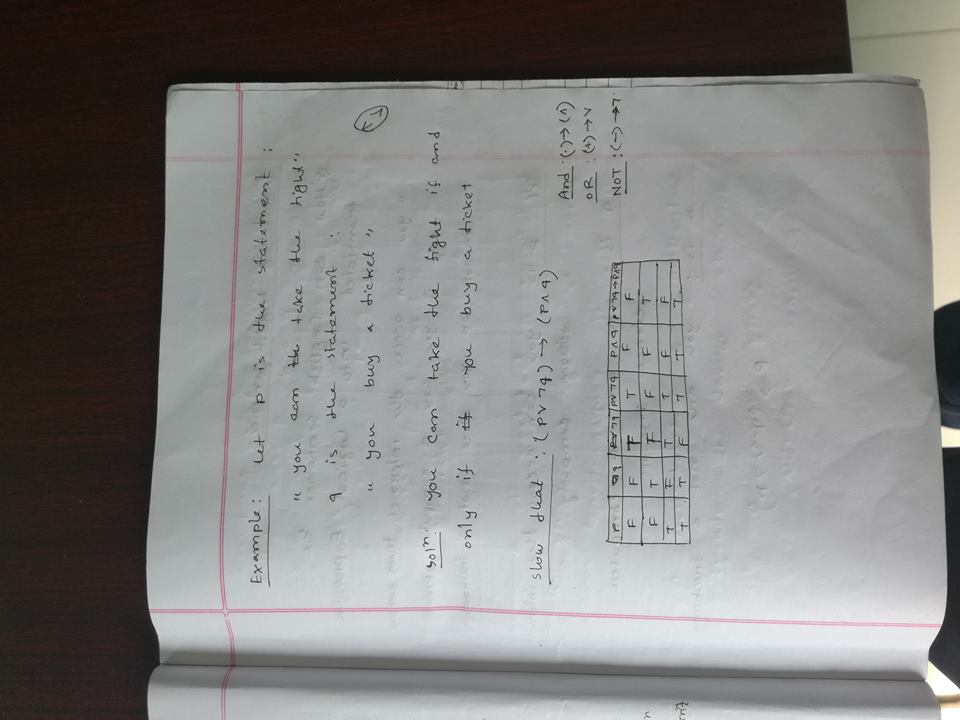 Example: Let p is the statement :
"you can take the fight"
q is the statement :
"you buy a ticket"
Soln: you can take the fight if and
only if you buy a ticket
Slow that : (p∨¬q) → (p∧q)
And : (·) → (∧)
OR : (+) → ∨
NOT : (−) → ¬
P q ¬q p∨¬q p∧q p∨¬q→p∧q
F F T T F F
F T F F F T
T F T T F F
T T F T T T